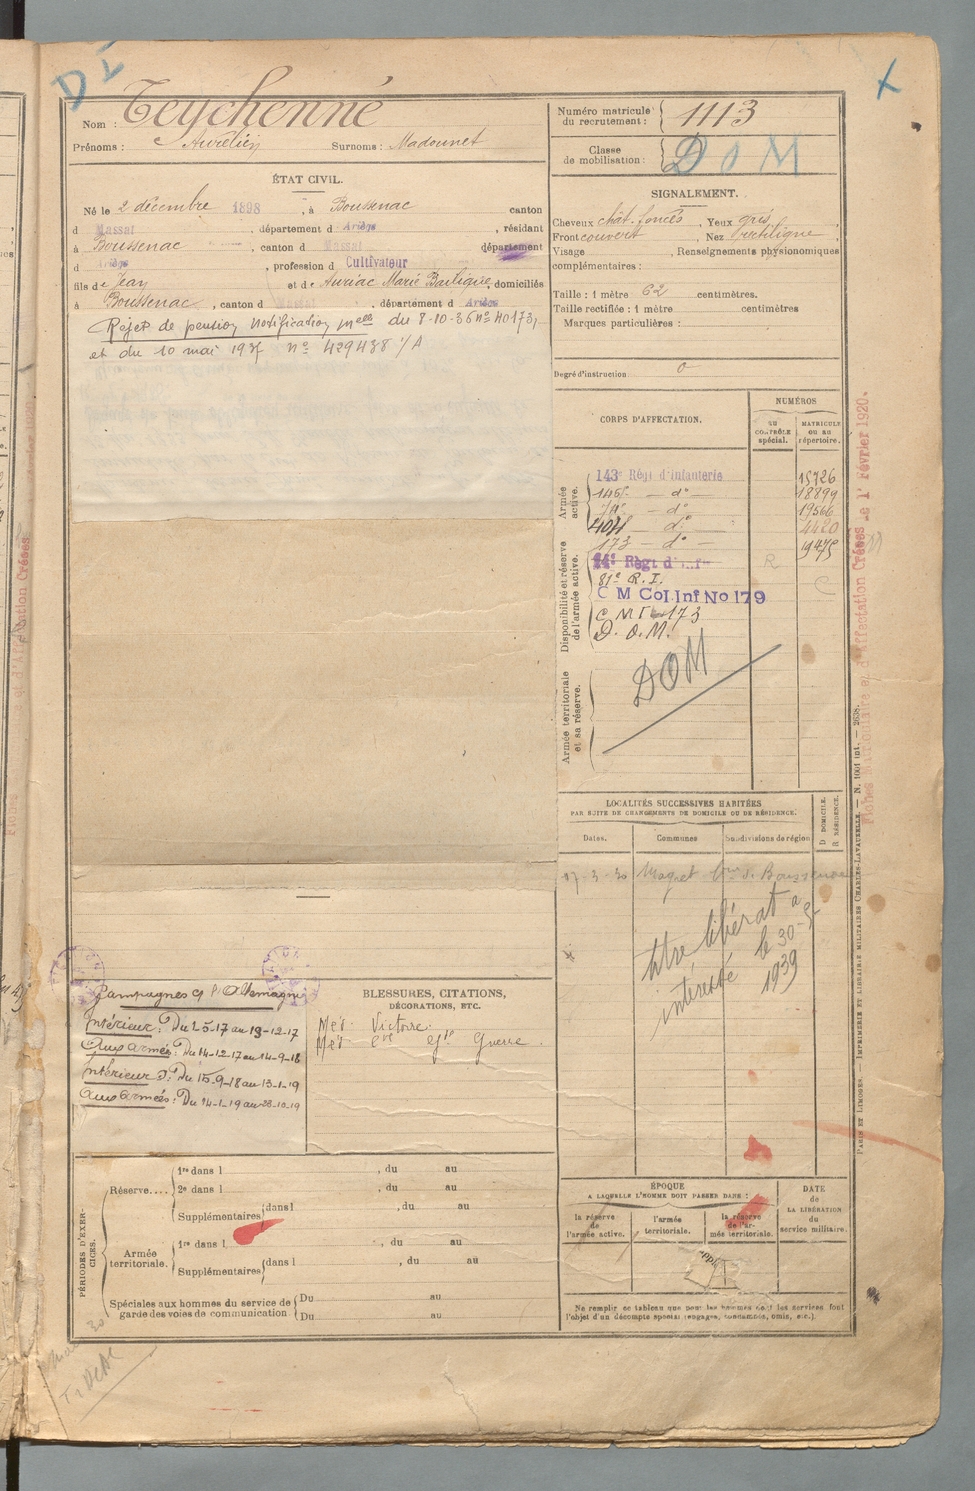 DI
Nom : Teychenné
Prénoms : Aurélien Surnoms : Madounet
ÉTAT CIVIL.
Né le 2 décembre 1898, à Boussenac canton
d Massat, département d Ariège, résidant
à Boussenac, canton d Massat département
d Ariège, profession d Cultivateur
fils de Jean et de Auriac Marie Basilique, domiciliés
à Boussenac, canton d Massat, département d Ariège
Rejet de pension Notification melle du 8-10-36 no 40173,
et du 10 mai 1937 no 429438 /A
Campagnes c/ l'Allemagne
Intérieur : Du 2-5-17 au 13-12-17
Aux armées : Du 14-12-17 au 14-9-18
Intérieur : Du 15-9-18 au 13-1-19
Aux armées : Du 14-1-19 au 28-10-19
BLESSURES, CITATIONS,
DÉCORATIONS, ETC.
Mét. Victoire.
Mét. Gde Guerre.
PÉRIODES D'EXERCICES.
Réserve....
1re dans l , du au
2e dans l , du au
Supplémentaires dans l , du au
Armée territoriale.
1re dans l , du au
Supplémentaires dans l , du au
Spéciales aux hommes du service de garde des voies de communication.
Du au
Du au
Numéro matricule du recrutement : 1113
Classe de mobilisation : DOM
SIGNALEMENT.
Cheveux chât. foncés, Yeux gris
Front couvert, Nez rectiligne
Visage , Renseignements physionomiques
complémentaires :
Taille : 1 mètre 62 centimètres.
Taille rectifiée : 1 mètre centimètres
Marques particulières :
Degré d'instruction 0
CORPS D'AFFECTATION.
NUMÉROS
AU CONTRÔLE spécial.
MATRICULE ou au répertoire.
Armée active.
143e Régt d'Infanterie 15726
145e — do — 18899
— do — 19566
401e do 4420
173 — do — 19475
Disponibilité et réserve de l'armée active.
14e Régt d'Inf R
81e R. I.
C M Col. Inf No 179 C
C M I 173
D. O. M.
Armée territoriale et sa réserve.
DOM
LOCALITÉS SUCCESSIVES HABITÉES
PAR SUITE DE CHANGEMENTS DE DOMICILE OU DE RÉSIDENCE.
Dates. Communes Subdivisions de région D DOMICILE. R RÉSIDENCE.
17-3-30 Maquet Cne d. Boussenac
titre libérat a
intéressé le 30-5-
1939
ÉPOQUE
A LAQUELLE L'HOMME DOIT PASSER DANS :
DATE DE LA LIBÉRATION du service militaire.
la réserve de l'armée active.
l'armée territoriale.
la réserve de l'armée territoriale.
Ne remplir ce tableau que pour les hommes dont les services font
l'objet d'un décompte spécial (engagés, omis, etc.).
Fiches et d'Affectation Créées le 1er Février 1920.
PARIS ET LIMOGES. — IMPRIMERIE ET LIBRAIRIE MILITAIRES CHARLES-LAVAUZELLE. — N. 1001 int. — 2638.